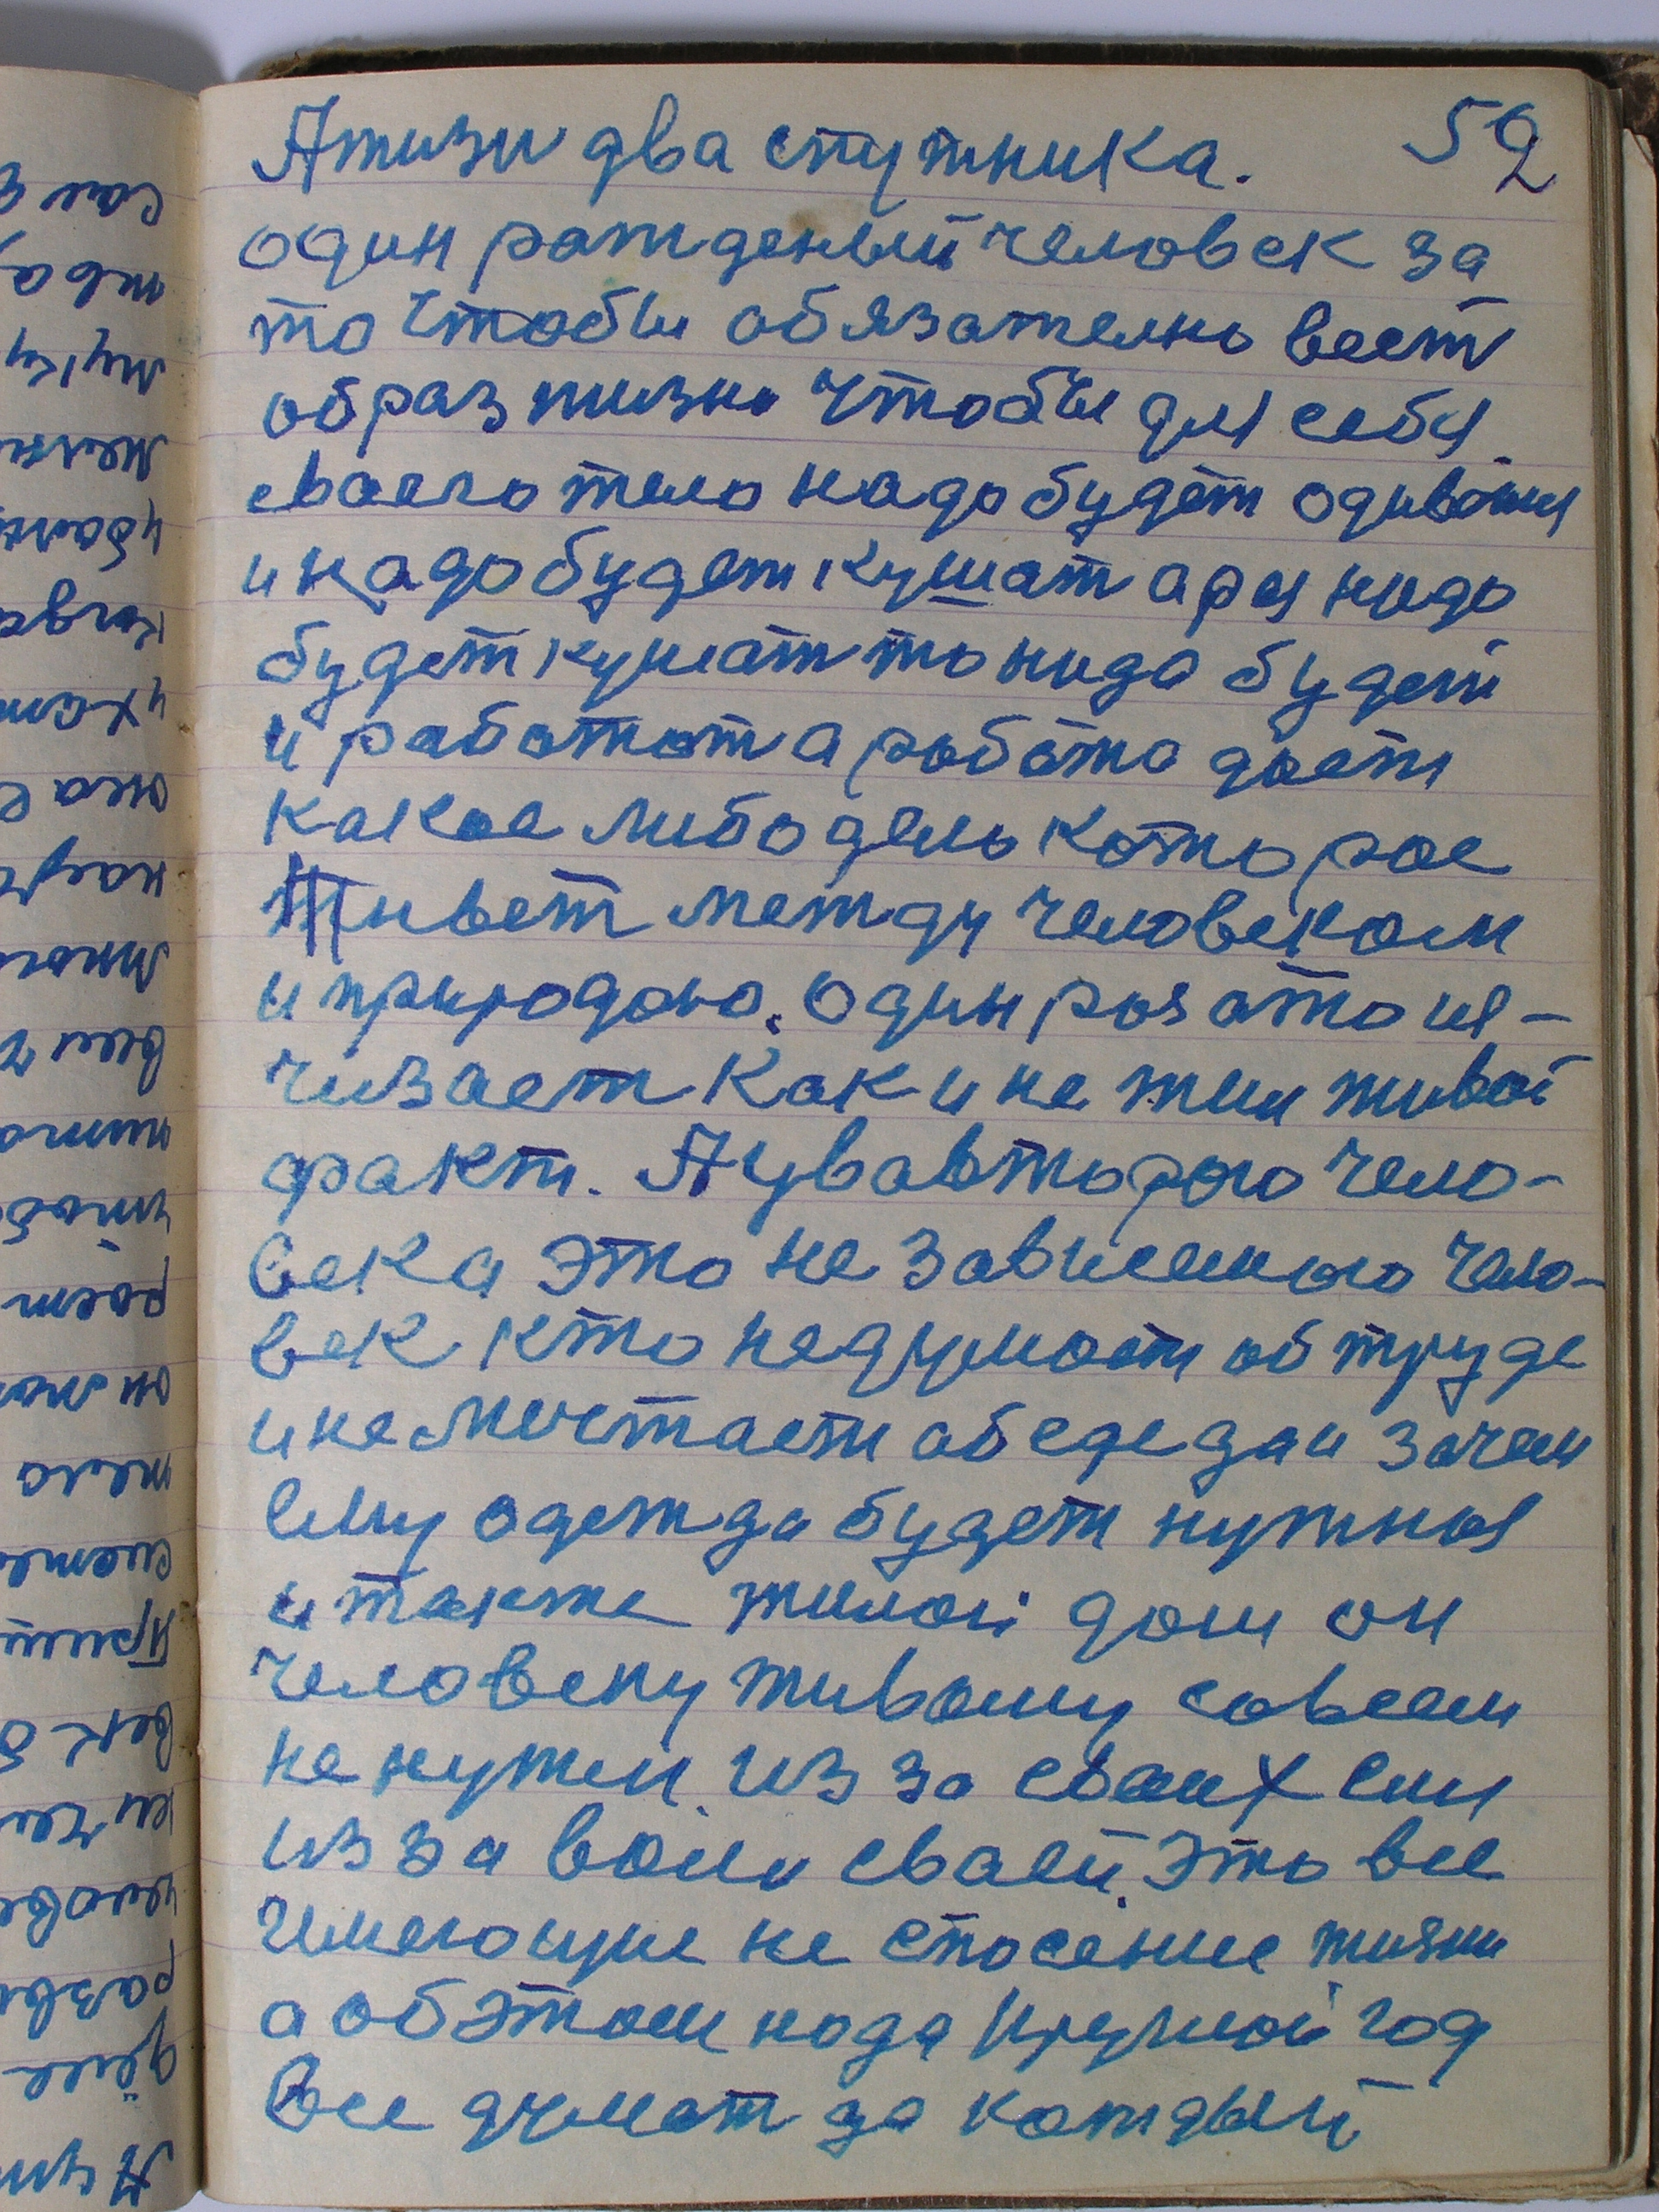 52
Ажизи два спутника.
один ражденый человек за
то чтобы обязателно вест
образ жизни чтобы для себя
сваего тело надо будет одиватся
и надо будет кушат араз надо
будет кушат то надо будет
и работат а работа дает
какое либо дело которое
живет между человеком
и природою. Один раз это
чивает как и не жил живой
факт. А у вавторого чело-
века это не зависемого чело-
век кто недумает об труде
и не мечтает об еде да и зачем
ему одежда будет нужная
и также жилой дом он
человеку живому совсем
не нужен. из за сваих сил
из за воли сваей. Это все
имеющие не спосение жизни
а об этом надо круглой год
Все думат да каждый